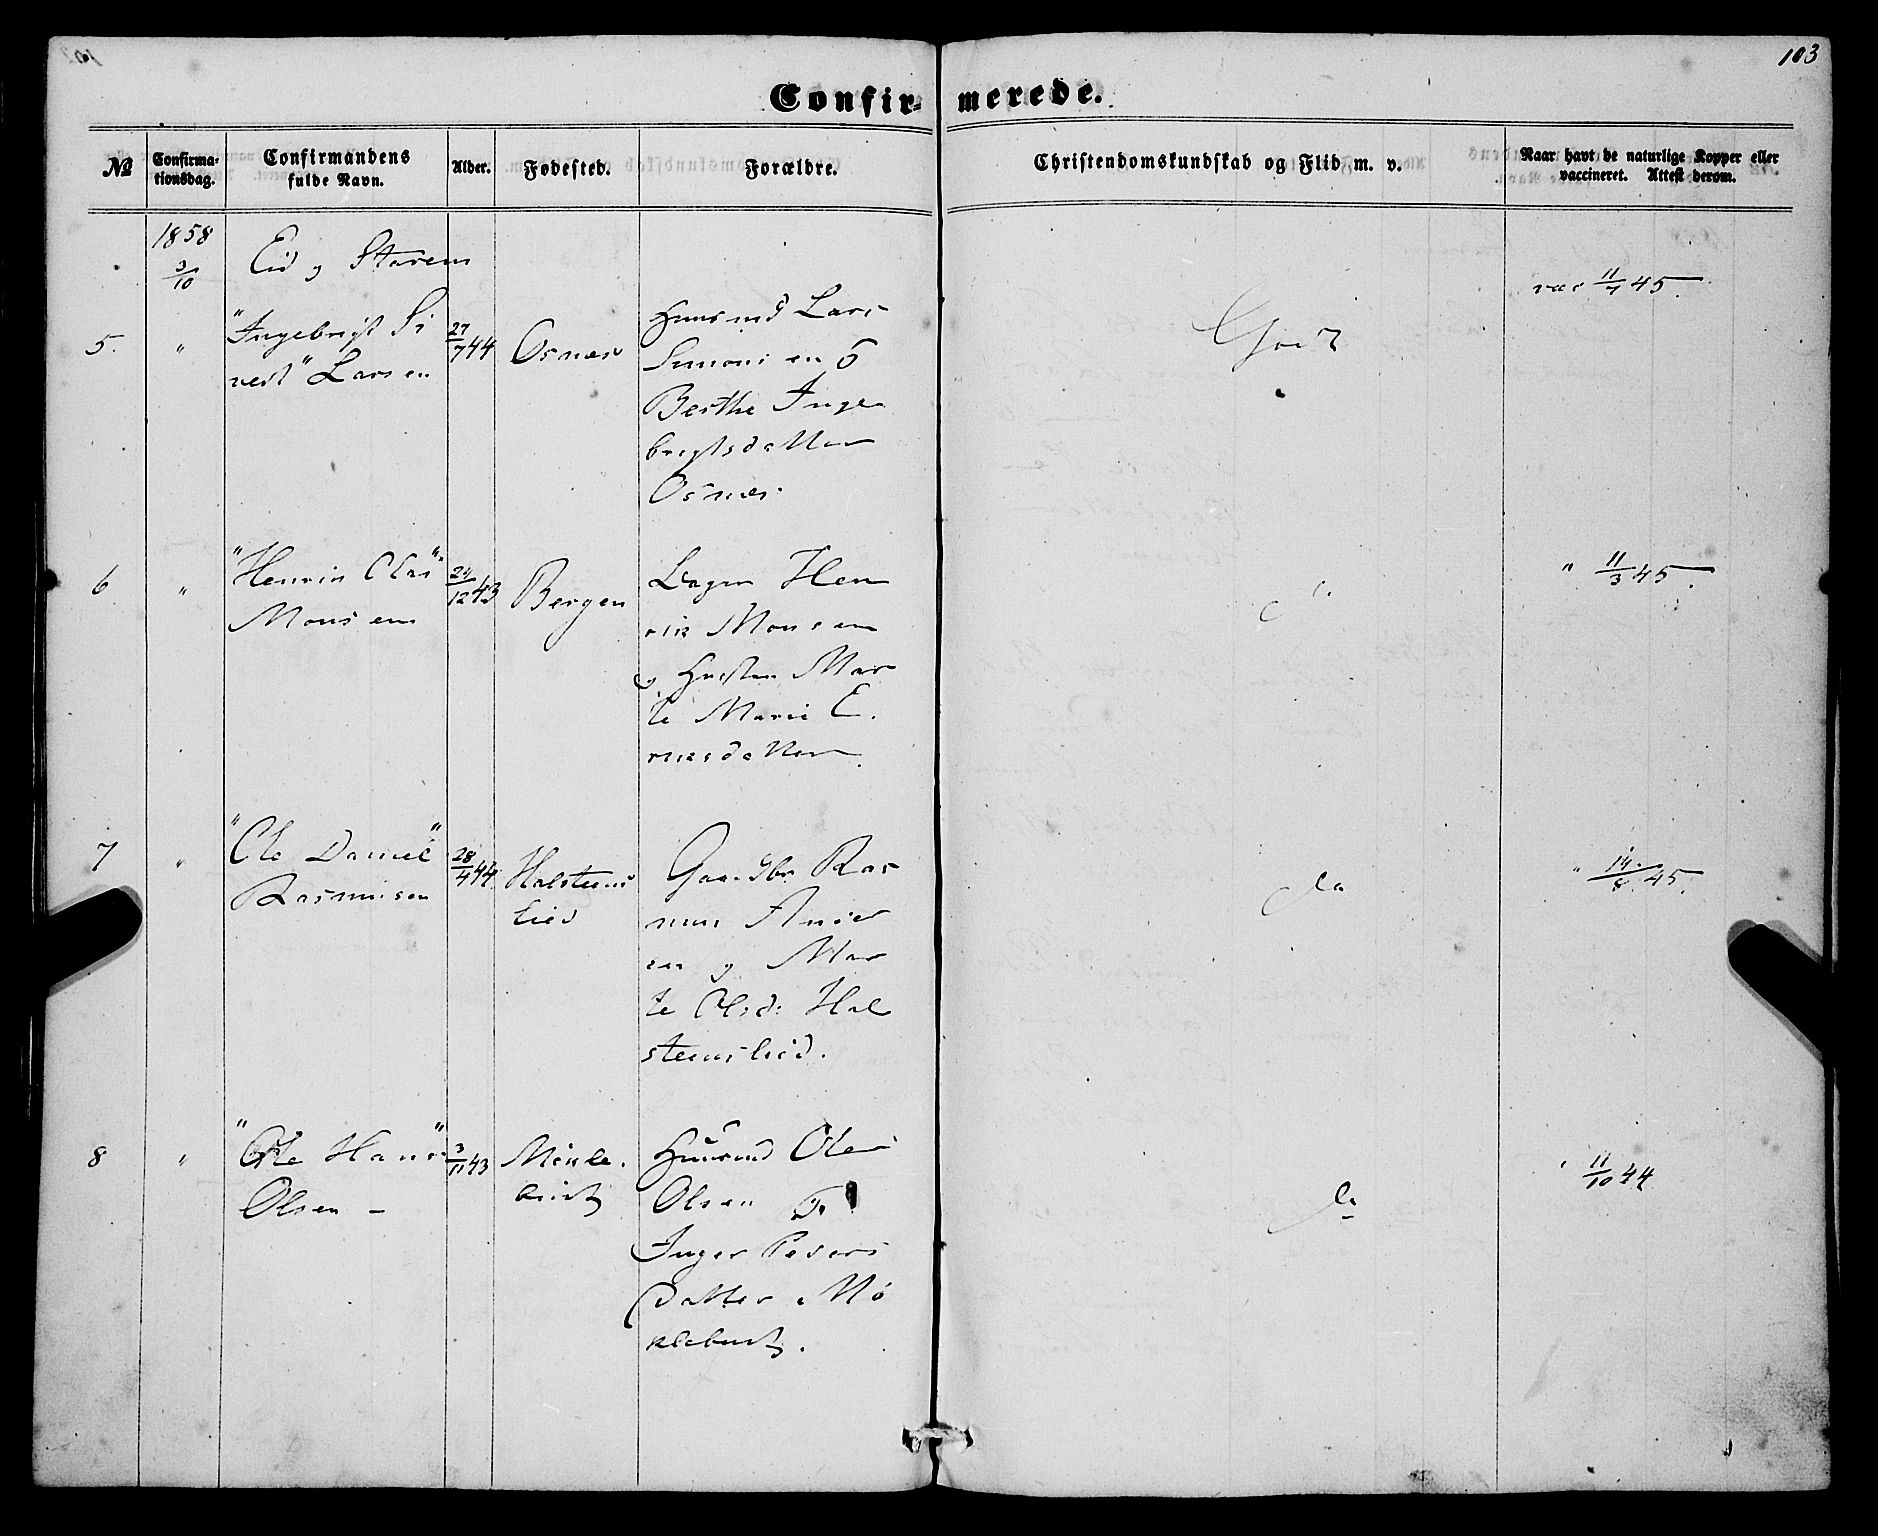 103
Confir- merede.
No
Confirma-
tionsdag.
Confirmandens
fulde Navn.
Alder.
Fødested.
Forældre.
Christendomskundskab og Flid m. v.
Naar havt de naturlige Kopper eller
vaccineret. Attest derom.
1858
3/10
Eid og
5. " "Ingebrigt Si
vert" Larsen
27/7 44
Osnes
Huusmd Lars
Simonsen &
Berthe Inge
brigtsdatter
Osnes.
Godt
vac 11/7 45.
6 " "Henrik Olai"
Monsen
24/12 43
Bergen
Hen
rik Monsen
og Mar
te Marie E.
riksdatter.
" 11/3 45.
7 " "Ole Daniel"
Rasmusen
28/4 44
Halsteens
lied
Gaardbr Ras
mus
en og Mar
te Olsd: Hal
steenslied.
do
" 14/8 45.
8 " "Ole Hans"
Olsen -
3/11 43
Møkle.
bust
Huusmd Ole
Olsen &
Inger Peders
Datter Mø
klebust.
do
" 11/10 44